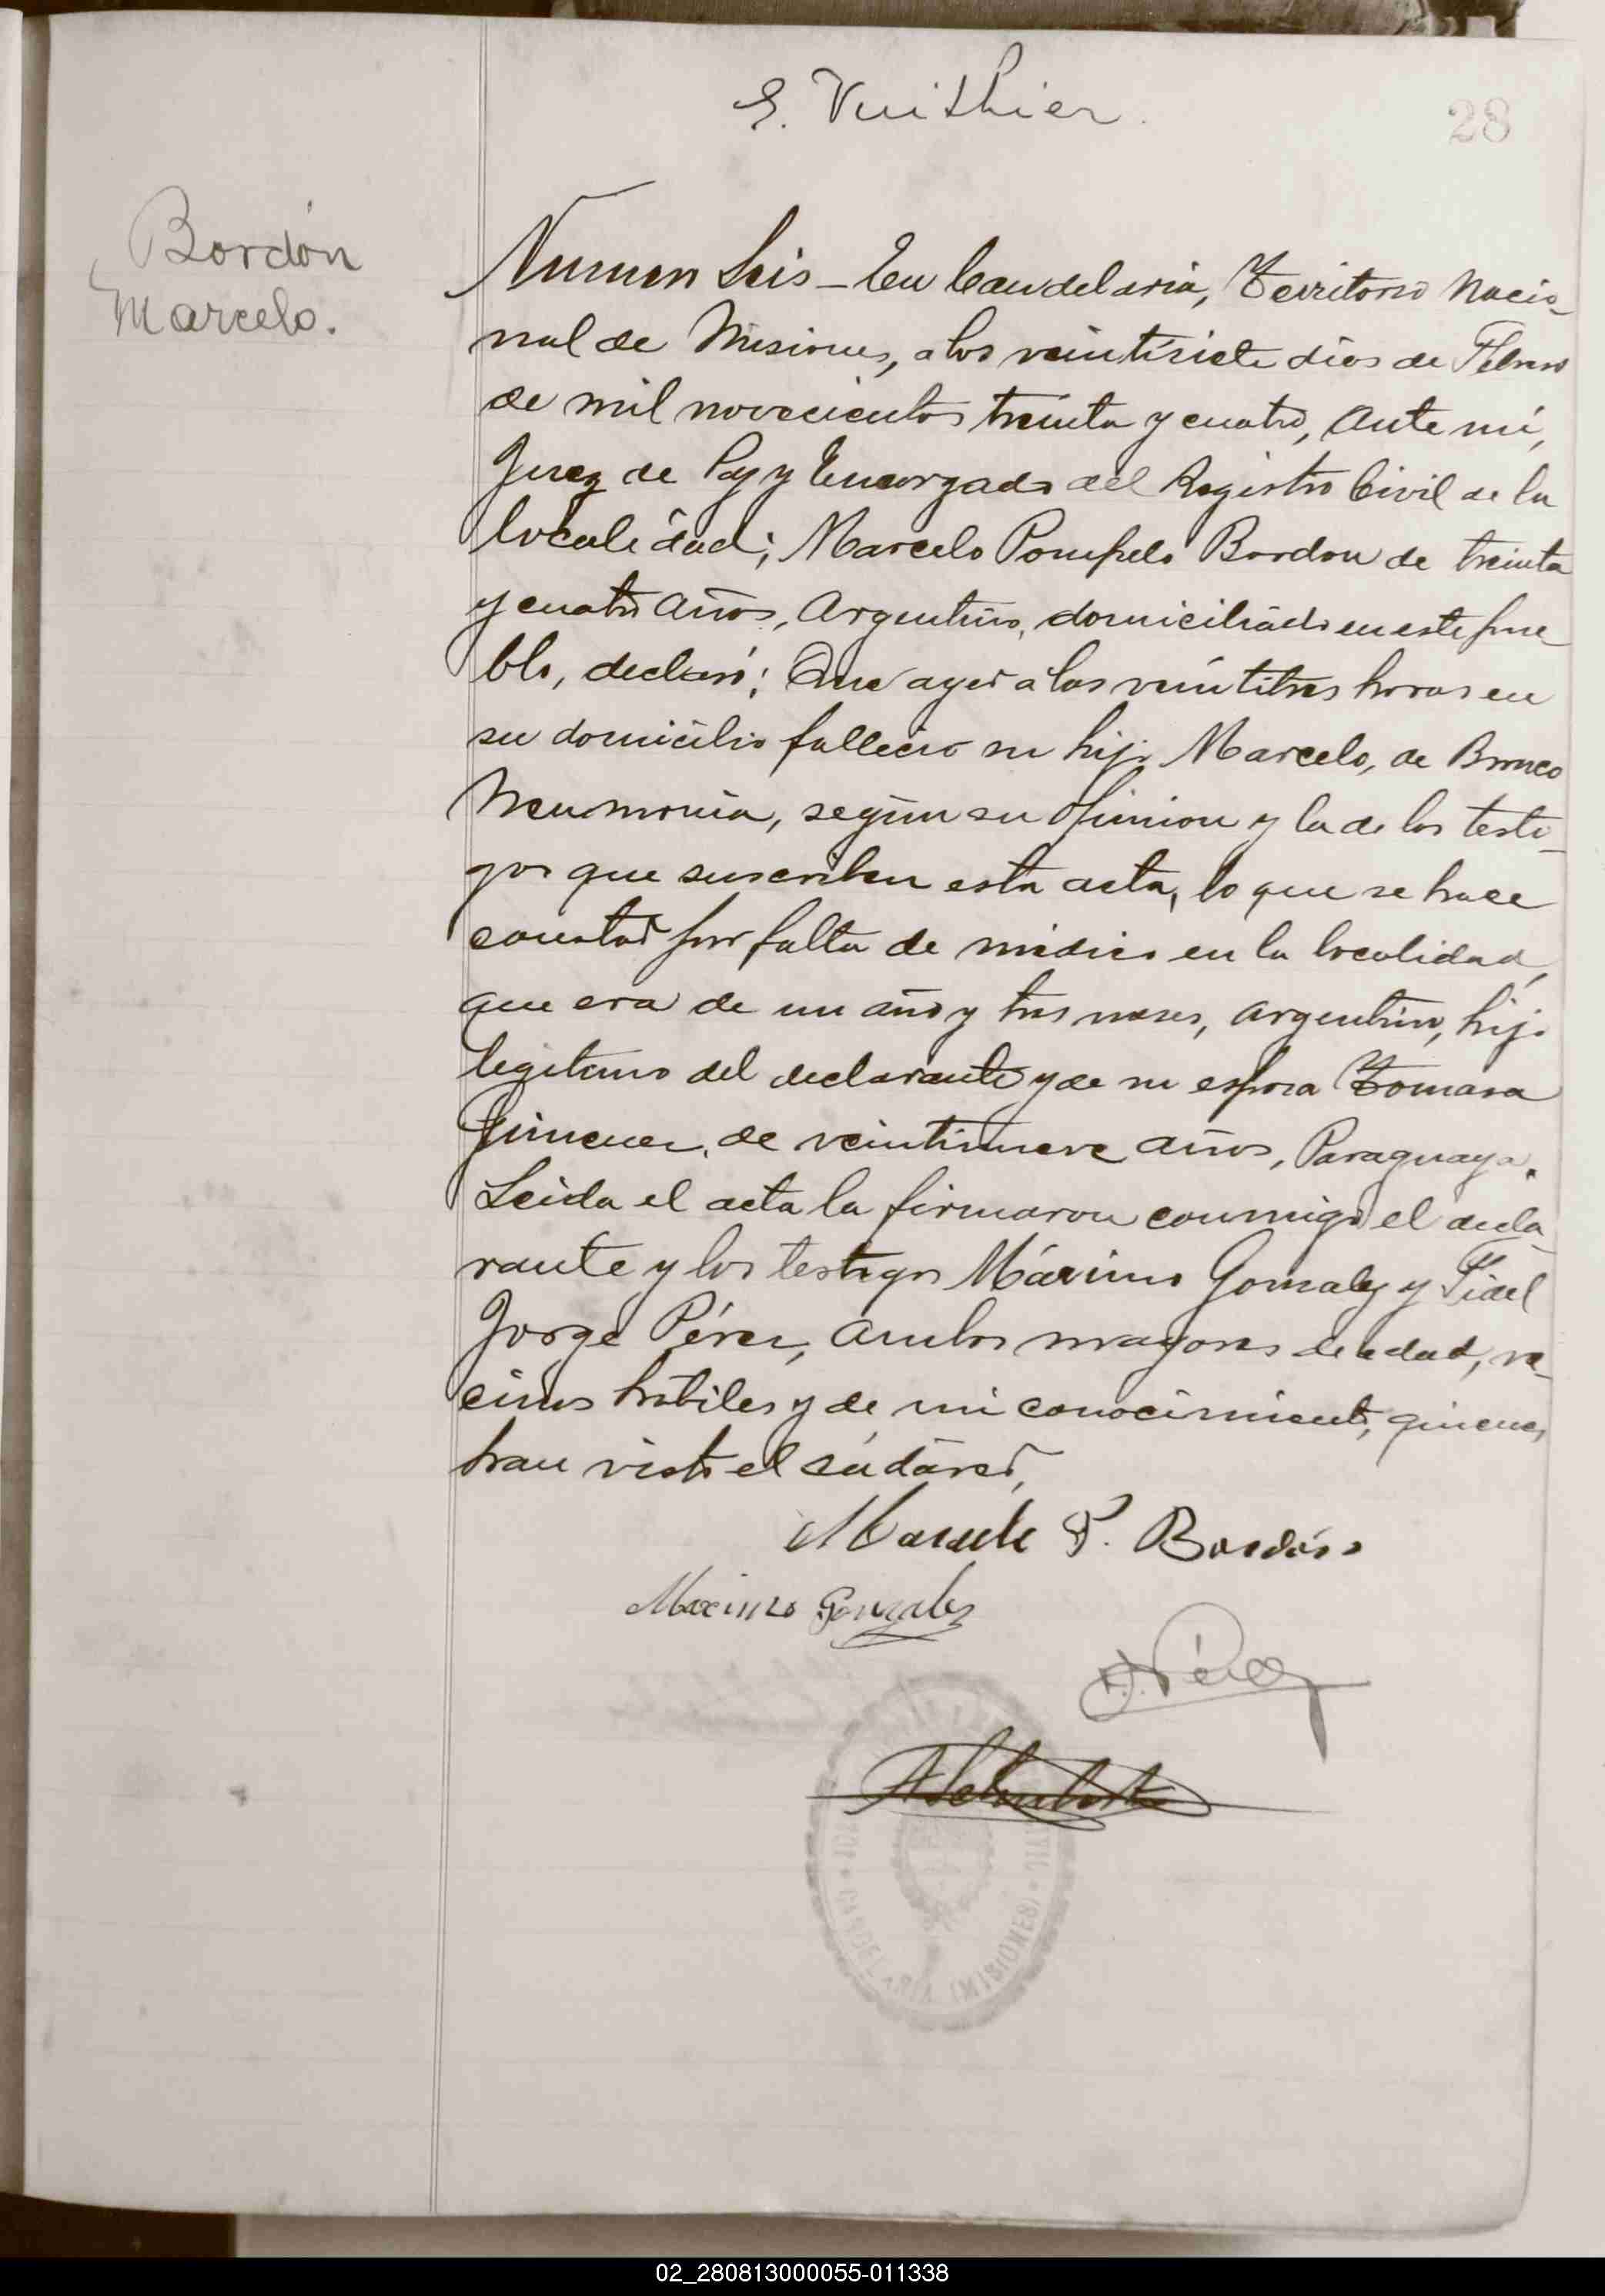 E. Vuithier.
28
Bordón
Marcelo.
Numero Seis – En Candelaria, Territorio Nacio-
nal de Misiones, a los veintisiete dias de Febrero
de mil novecientos treinta y cuatro, Ante mi,
Juez de Paz y Encargado del Registro Civil de la
localidad; Marcelo Pompelo Bordon de treinta
y cuatro años, Argentino, domiciliado en este pue-
blo, declaró; Que ayer a las veintitres horas en
su domicilio fallecio su hijo Marcelo, de Bronco
Neumonia, según su opinion y la de los testi-
gos que suscriben esta acta, lo que se hace
constar por falta de médico en la localidad,
que era de un año y tres meses, argentino, hijo
legitimo del declarante y de su esposa Tomasa
Jimenez, de veintinueve años, Paraguaya.
Leida el acta la firmaron conmigo el decla-
rante y los testigos Máximo Gonzalez y Fidel
Jorge Pérez, ambos mayores de edad, ve-
cinos hábiles y de mi conocimiento, quienes
han visto el cádaver,
Marcelo P. Bordón
Maximo Gonzalez
F. J. Pérez
CANDELARIA (MISIONES)
02_280813000055-011338